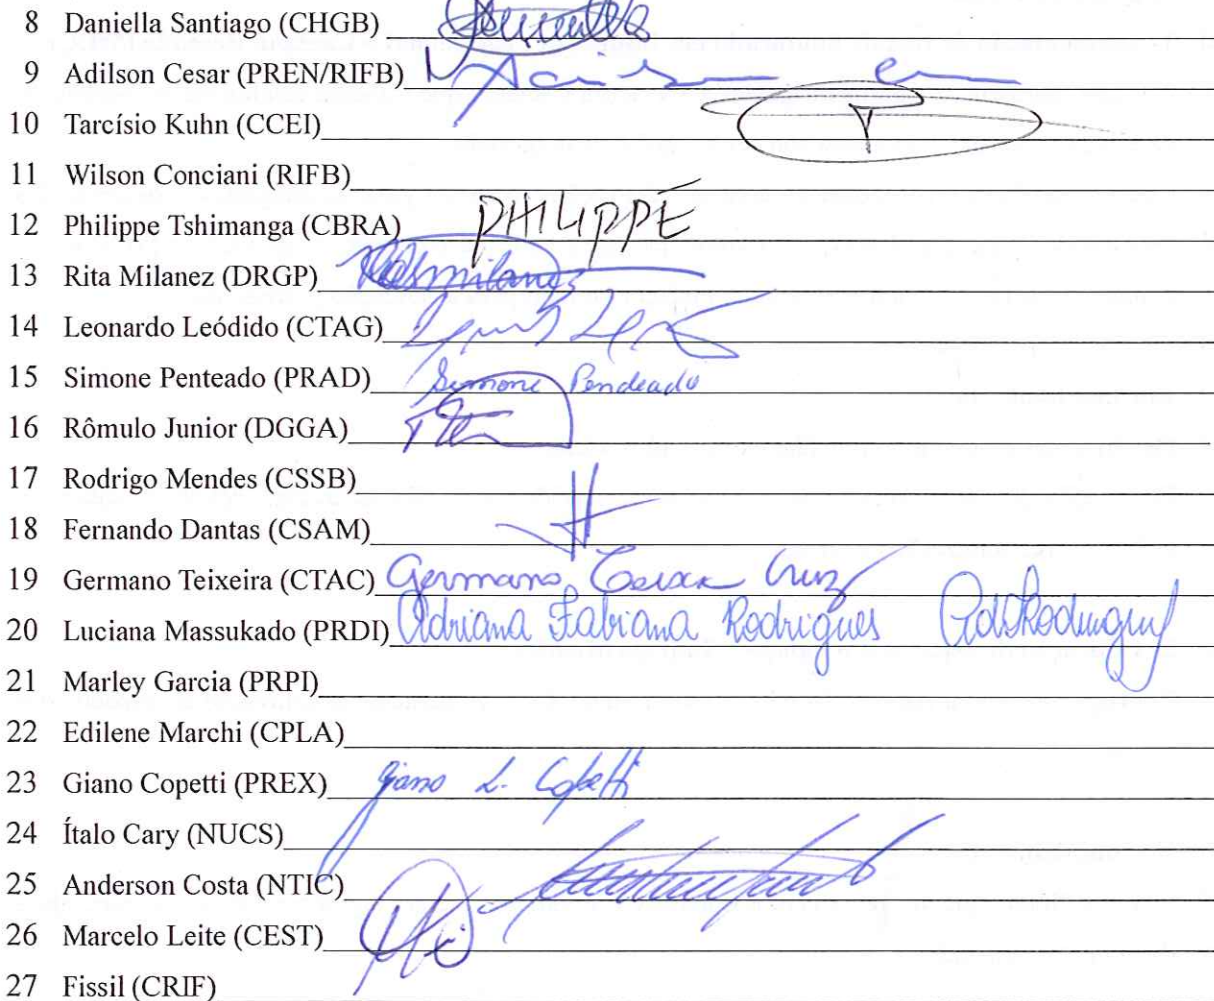 8 Daniella Santiago (CHGB)
9 Adilson Cesar (PREN/RIFB)
10 Tarcísio Kuhn (CCEI)
11 Wilson Conciani (RIFB)
12 Philippe Tshimanga (CBRA) PHILIPPE
13 Rita Milanez (DRGP)
14 Leonardo Leódido (CTAG)
15 Simone Penteado (PRAD) Simone Pendeado
16 Rômulo Junior (DGGA)
17 Rodrigo Mendes (CSSB)
18 Fernando Dantas (CSAM)
19 Germano Teixeira (CTAC) Germano Cruz
20 Luciana Massukado (PRDI) Adriana Fabiana Rodrigues
21 Marley Garcia (PRPI)
22 Edilene Marchi (CPLA)
23 Giano Copetti (PREX) Giano L. Copetti
24 Ítalo Cary (NUCS)
25 Anderson Costa (NTIC)
26 Marcelo Leite (CEST)
27 Fissil (CRIF)